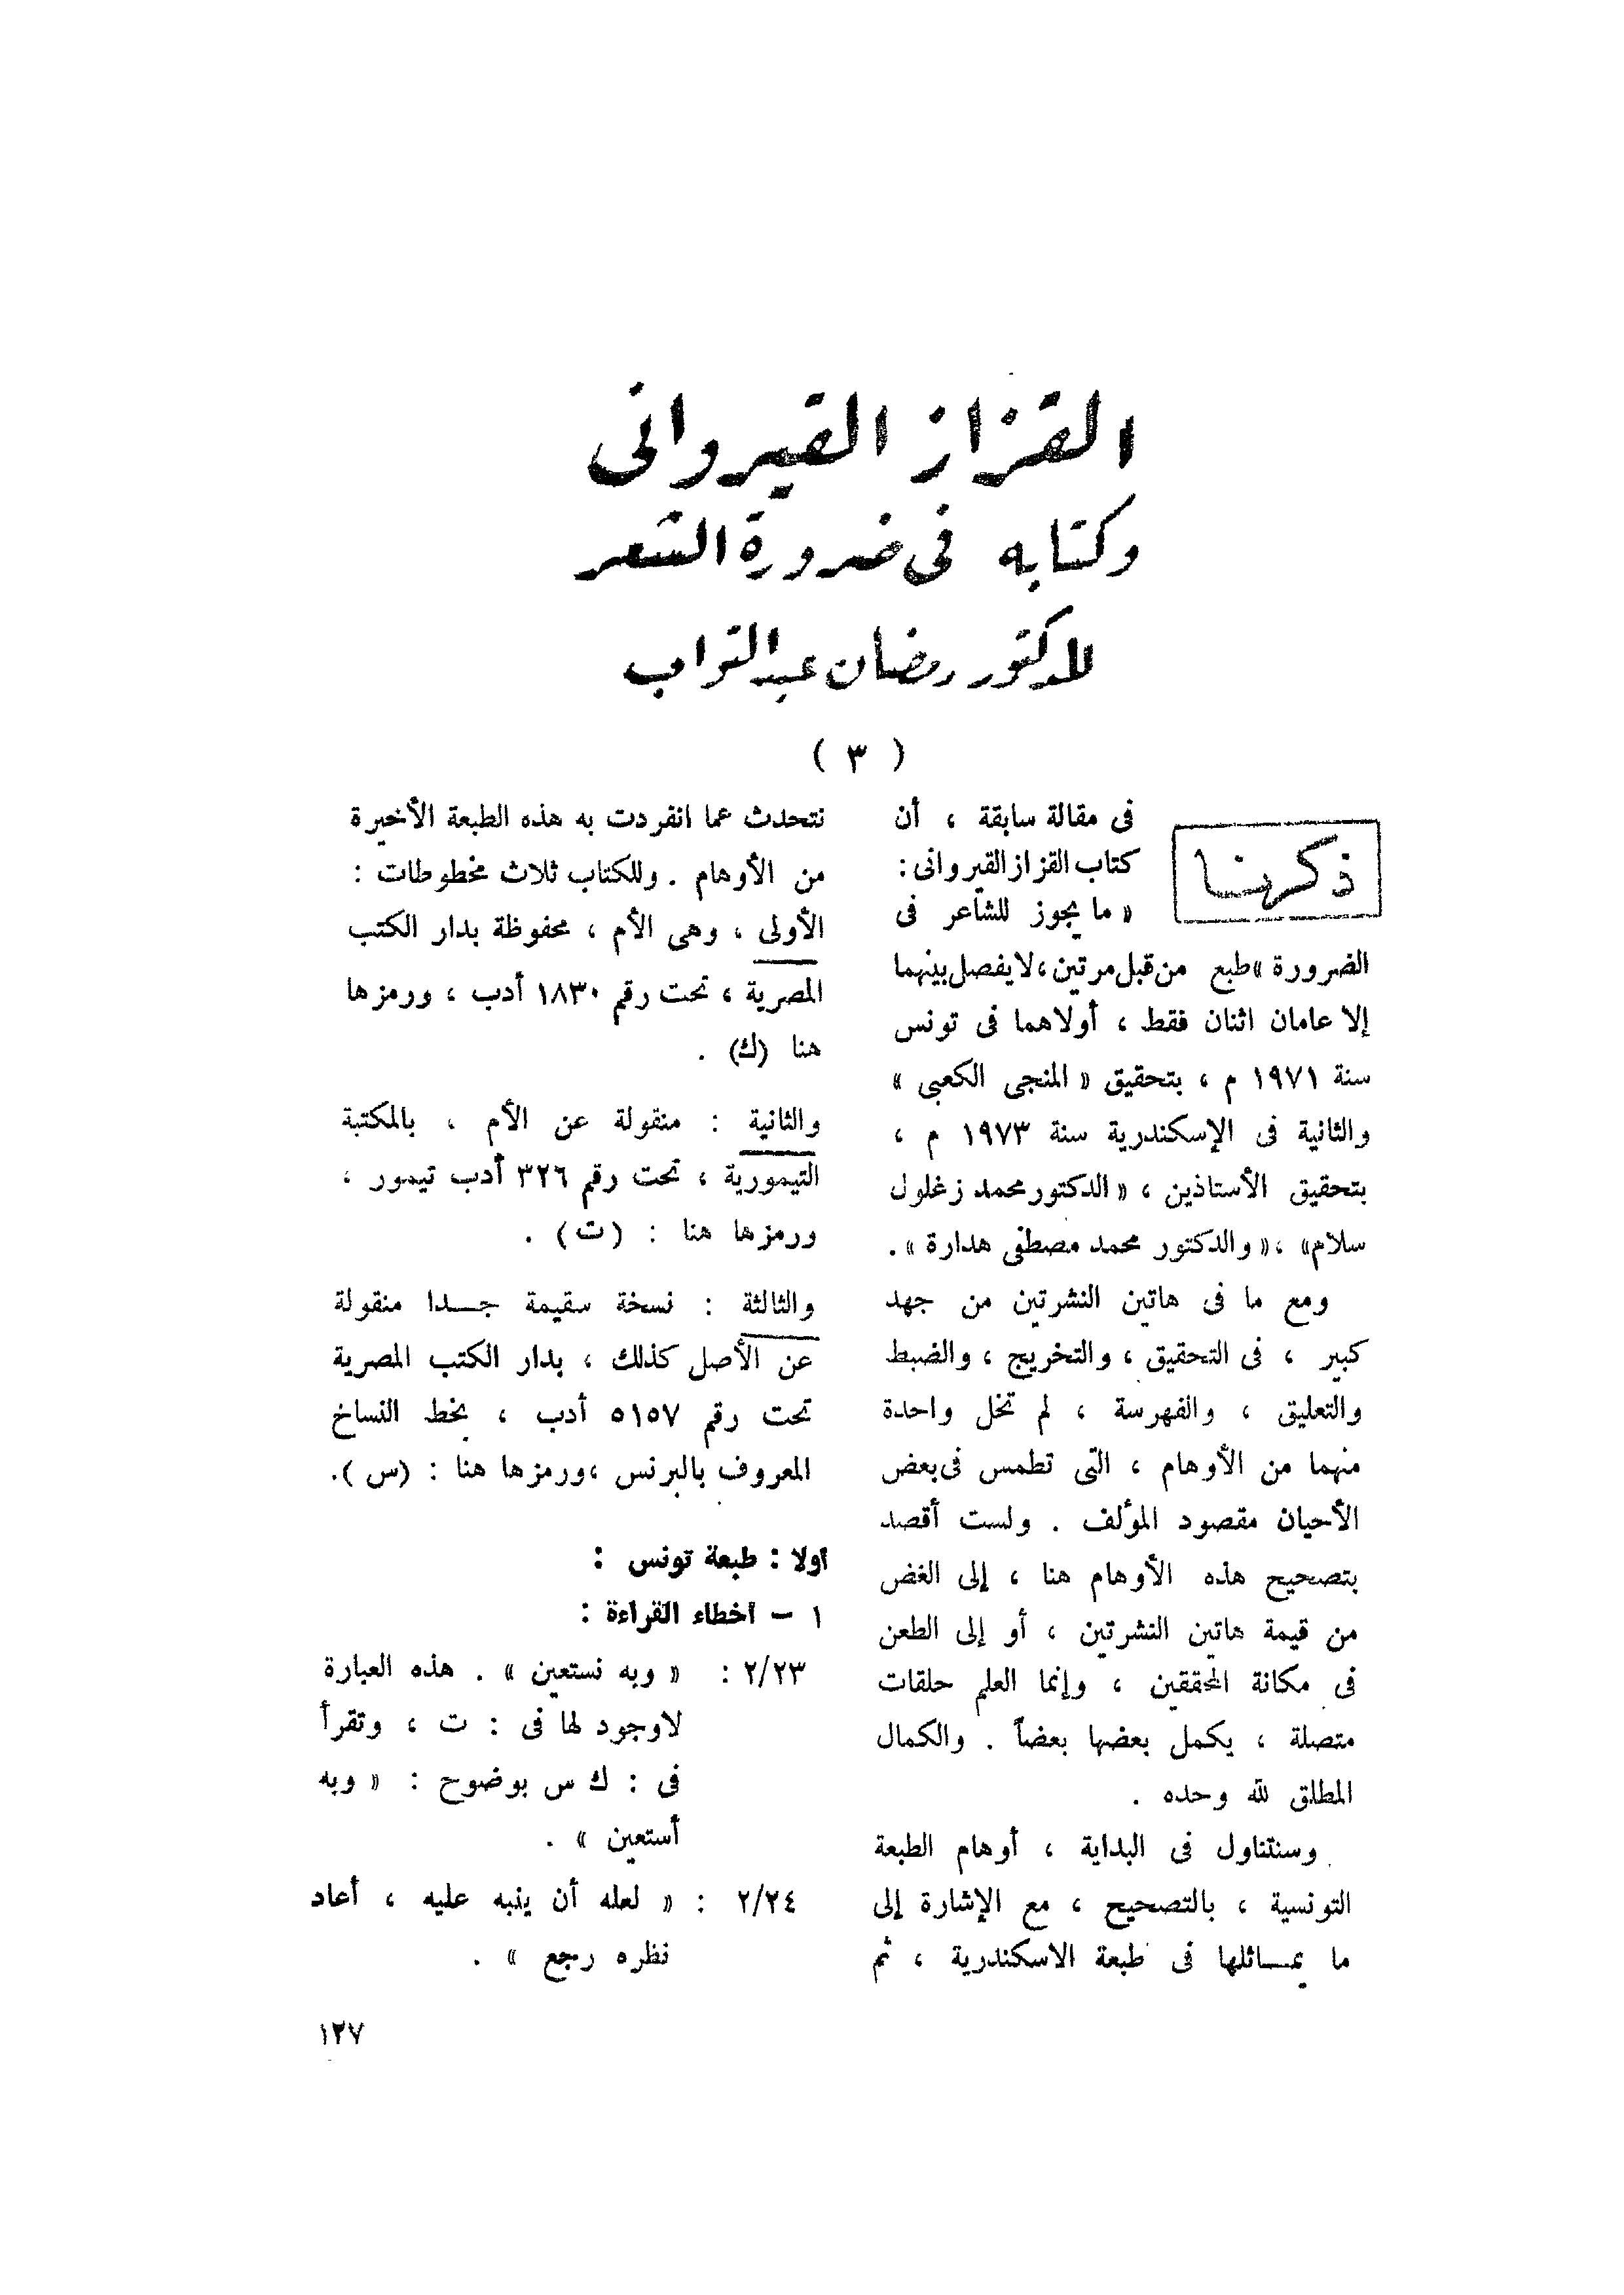 القزاز القيروانى
وكتابه فى ضرورة الشعر
للدكتور رمضان عبد التواب
( ٣ )
ذكرنا
فى مقالة سابقة ، أن
كتاب القزاز القيروانى :
« ما يجوز للشاعر فى
الضرورة » طبع من قبل مرتين ، لا يفصل بينهما
إلا عامان اثنان فقط ، أولاهما فى تونس
سنة ١٩٧١ م ، بتحقيق « المنجى الكعبى »
والثانية فى الإسكندرية سنة ١٩٧٣ م ،
بتحقيق الأستاذين ، « الدكتور محمد زغلول
سلام» ،« والدكتور محمد مصطفى هدارة ».
ومع ما فى هاتين النشرتين من جهد
كبير ، فى التحقيق ، والتخريج ، والضبط
والتعليق ، والفهرسة ، لم تخل واحدة
منهما من الأوهام ، التى تطمس فى بعض
الأحيان مقصود المؤلف . ولست أقصد
بتصحيح هذه الأوهام هنا ، إلى الغض
من قيمة هاتين النشرتين ، أو إلى الطعن
فى مكانة المحققين ، وإنما العلم حلقات
متصلة ، يكمل بعضها بعضاً . والكمال
المطلق لله وحده .
وسنتناول فى البداية ، أوهام الطبعة
التونسية ، بالتصحيح ، مع الإشارة إلى
ما يمـــاثلها فى طبعة الاسكندرية ، ثم
نتحدث عما انفردت به هذه الطبعة الأخيرة
من الأوهام . وللكتاب ثلاث مخطوطات :
الأولى ، وهى الأم ، محفوظة بدار الكتب
المصرية ، تحت رقم ١٨٣٠ أدب ، ورمزها
هنا (ك) .
والثانية : منقولة عن الأم ، بالمكتبة
التيمورية ، تحت رقم ٣٢٦ أدب تيمور ،
ورمزها هنا : (ت) .
والثالثة : نسخة سقيمة جـــدا منقولة
عن الأصل كذلك ، بدار الكتب المصرية
تحت رقم ٥١٥٧ أدب ، بخط النساخ
المعروف بالبرنس ،ورمزها هنا : (س ).
أولا : طبعة تونس :
١ – أخطاء القراءة :
٢/٢٣ : « وبه نستعين » . هذه العبارة
لاوجود لها فى : ت ، وتقرأ
فى : ك س بوضوح : « وبه
أستعين » .
٢/٢٤ : « لعله أن ينبه عليه ، أعاد
نظره رجع » .
١٢٧